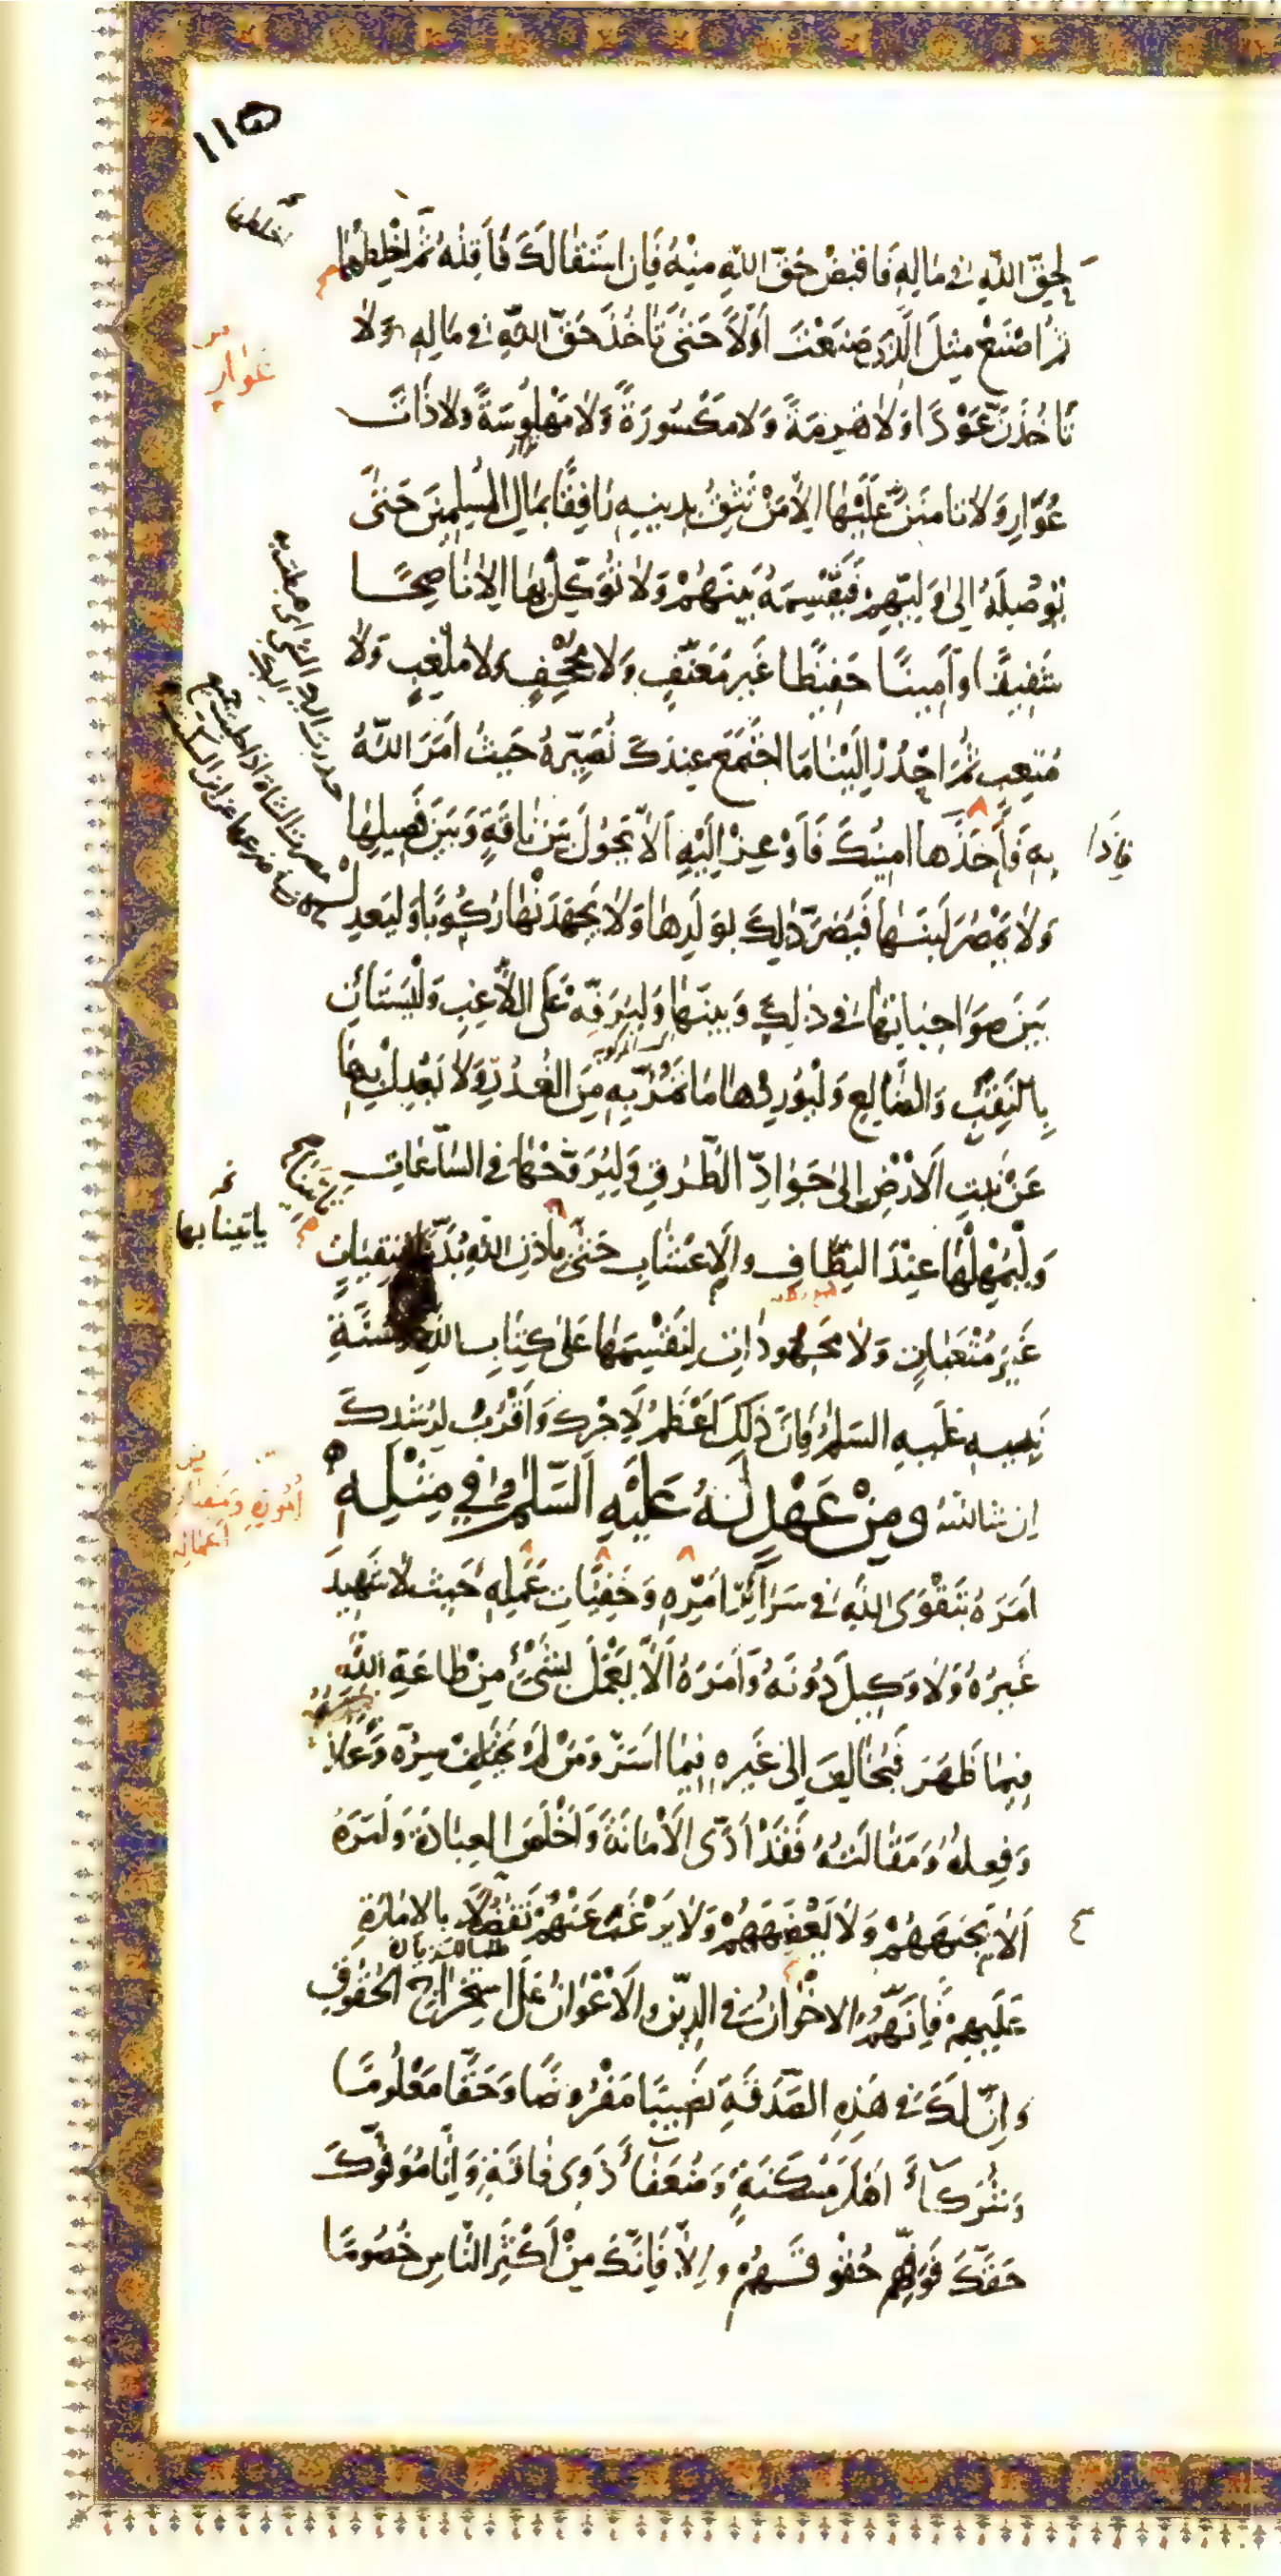 ١١٥
لِحَقِّ اللّٰهِ فِي مَالِهِ فَاقْبِضْ حَقَّ اللّٰهِ مِنْهُ فَإِنِ اسْتَقَالَكَ فَأَقِلْهُ ثُمَّ اخْلِطْهُمَا
ثُمَّ اصْنَعْ مِثْلَ الَّذِي صَنَعْتَ أَوَّلًا حَتَّى تَأْخُذَ حَقَّ اللّٰهِ فِي مَالِهِ وَلَا
تَأْخُذَنَّ عَوْدًا وَلَا هَرِمَةً وَلَا مَكْسُورَةً وَلَا مَهْلُوسَةً وَلَا ذَاتَ
عَوَارٍ وَلَا تَأْمَنَنَّ عَلَيْهَا إِلَّا مَنْ تَثِقُ بِدِينِهِ رَافِقًا بِمَالِ الْمُسْلِمِينَ حَتَّى
يُوَصِّلَهُ إِلَى وَلِيِّهِمْ فَيَقْسِمَهُ بَيْنَهُمْ وَلَا تُوَكِّلْ بِهَا إِلَّا نَاصِحًا
شَفِيقًا وَأَمِينًا حَفِيظًا غَيْرَ مُعَنِّفٍ وَلَا مُجْحِفٍ وَلَا مُلْغِبٍ وَلَا
مُتْعِبٍ ثُمَّ احْدُرْ إِلَيْنَا مَا اجْتَمَعَ عِنْدَكَ نُصَيِّرْهُ حَيْثُ أَمَرَ اللّٰهُ
بِهِ فَأَخَذَهَا أَمِينُكَ فَأَوْعِزْ إِلَيْهِ أَلَّا يَحُولَ بَيْنَ نَاقَةٍ وَبَيْنَ فَصِيلِهَا
وَلَا يَمْصُرَ لَبَنَهَا فَيَضُرَّ ذٰلِكَ بِوَلَدِهَا وَلَا يَجْهَدَنَّهَا رُكُوبًا وَلْيَعْدِلْ
بَيْنَ صَوَاحِبَاتِهَا فِي ذٰلِكَ وَبَيْنَهَا وَلْيُرَفِّهْ عَلَى اللَّاغِبِ وَلْيَسْتَأْنِ
بِالنَّقِبِ وَالظَّالِعِ وَلْيُورِدْهَا مَا تَمُرُّ بِهِ مِنَ الْغُدُرِ وَلَا يَعْدِلْ بِهَا
عَنْ نَبْتِ الْأَرْضِ إِلَى جَوَادِّ الطُّرُقِ وَلْيُرَوِّحْهَا فِي السَّاعَاتِ
وَلْيُمْهِلْهَا عِنْدَ النِّطَافِ وَالْأَعْشَابِ حَتَّى بِإِذْنِ اللّٰهِ بُدَّنًا مُنْقِيَاتٍ
غَيْرَ مُتْعَبَاتٍ وَلَا مَجْهُودَاتٍ لِنَقْسِمَهَا عَلَى كِتَابِ اللّٰهِ وَسُنَّةِ
نَبِيِّهِ عَلَيْهِ السَّلٰمُ فَإِنَّ ذٰلِكَ أَعْظَمُ لِأَجْرِكَ وَأَقْرَبُ لِرُشْدِكَ
إِنْ شَاءَ اللّٰهُ وَمِنْ عَهْدٍ لَهُ عَلَيْهِ السَّلٰمُ فِي مِثْلِهِ
أَمَرَهُ بِتَقْوَى اللّٰهِ فِي سَرَائِرِ أَمْرِهِ وَخَفِيَّاتِ عَمَلِهِ حَيْثُ لَا شَهِيدَ
غَيْرُهُ وَلَا وَكِيلَ دُونَهُ وَأَمَرَهُ أَلَّا يَعْمَلَ بِشَيْءٍ مِنْ طَاعَةِ اللّٰهِ
فِيمَا ظَهَرَ فَيُخَالِفَ إِلَى غَيْرِهِ فِيمَا أَسَرَّ وَمَنْ لَمْ يَخْتَلِفْ سِرُّهُ وَعَلَانِيَتُهُ
وَفِعْلُهُ وَمَقَالَتُهُ فَقَدْ أَدَّى الْأَمَانَةَ وَأَخْلَصَ الْعِبَادَةَ وَأَمَرَهُ
أَلَّا يَجْبَهَهُمْ وَلَا يَعْضَهَهُمْ وَلَا يَرْغَبَ عَنْهُمْ تَفَضُّلًا بِالْإِمَارَةِ
عَلَيْهِمْ فَإِنَّهُمُ الْإِخْوَانُ فِي الدِّينِ وَالْأَعْوَانُ عَلَى اسْتِخْرَاجِ الْحُقُوقِ
وَإِنَّ لَكَ فِي هٰذِهِ الصَّدَقَةِ نَصِيبًا مَفْرُوضًا وَحَقًّا مَعْلُومًا
وَشُرَكَاءَ أَهْلَ مَسْكَنَةٍ وَضُعَفَاءَ ذَوِي فَاقَةٍ وَإِنَّا مُوَفُّوكَ
حَقَّكَ فَوَفِّهِمْ حُقُوقَهُمْ وَإِلَّا فَإِنَّكَ مِنْ أَكْثَرِ النَّاسِ خُصُومًا
اخلطها
عَوَار
فإذا
تأتينا بها
أُمُورِهِ
أَعْمَالِهِ